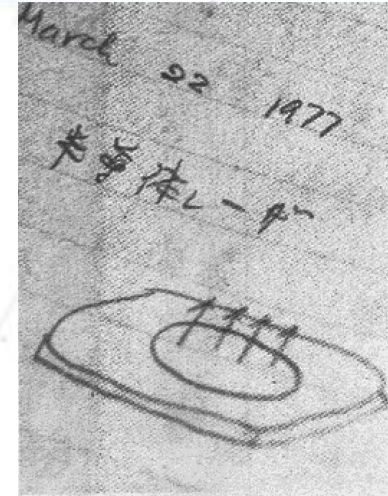 March 22 1977
半導体レーザ